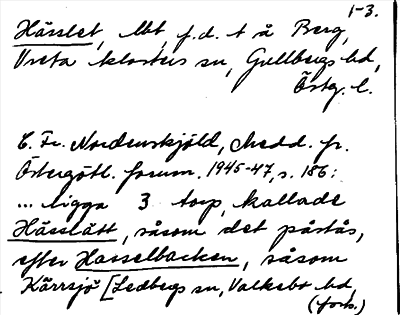 1-3.
Hässlet, lbt, f.d. t å Berg,
Vreta klosters sn, Gullbergs hd,
Östg. l.
C. Fr. Nordenskjöld, Medd. fr.
Östergötl. fornm. 1945-47, s. 186:
... ligga 3 torp, kallade
Hässlätt, såsom det påstås,
efter Hasselbacken, såsom
Kärrsjö [Ledbergs sn, Valkebo hd,
(forts.)